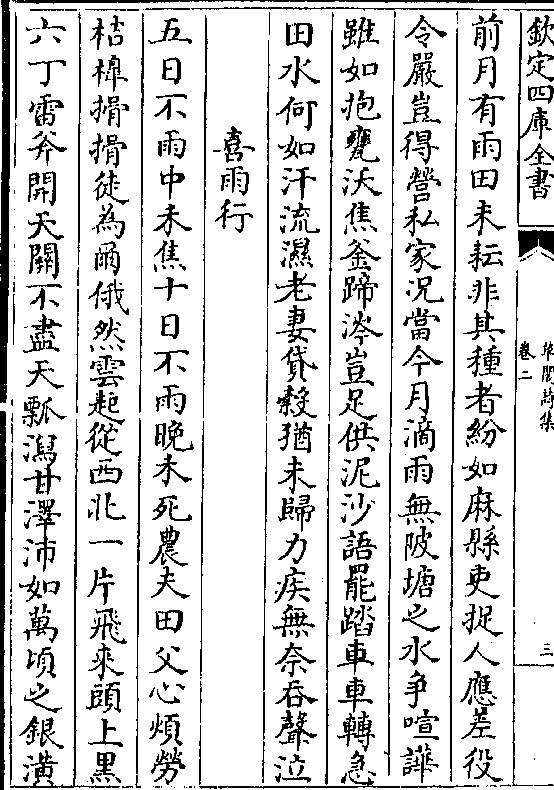 欽定四庫全書
詩集
卷二
三
前月有雨田未耘非其種者紛如麻縣吏捉人應差役
令嚴豈得營私家况當今月滴雨無陂塘之水爭喧譁
雖如抱甕沃焦釜蹄涔豈足供泥沙語罷踏車車轉急
田水何如汗流濕老妻貸穀猶未歸力疾無奈吞聲泣
喜雨行
五日不雨中禾焦十日不雨晚禾死農夫田父心煩勞
桔槹搰搰徒為爾俄然雲起從西北一片飛來頭上黑
六丁雷斧開天關不盡天瓢瀉甘澤沛如萬頃之銀潢